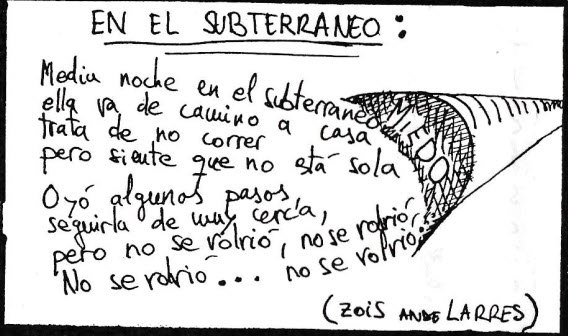 EN EL SUBTERRANEO:
Media noche en el subterraneo
ella va de camino a casa
trata de no correr
pero siente que no está sola
MIEDO
Oyó algunos pasos,
seguirla de muy cerca,
pero no se volvió, no se volvió,
No se volvió... no se volvió.
(ZOIS ANDE LARRES)